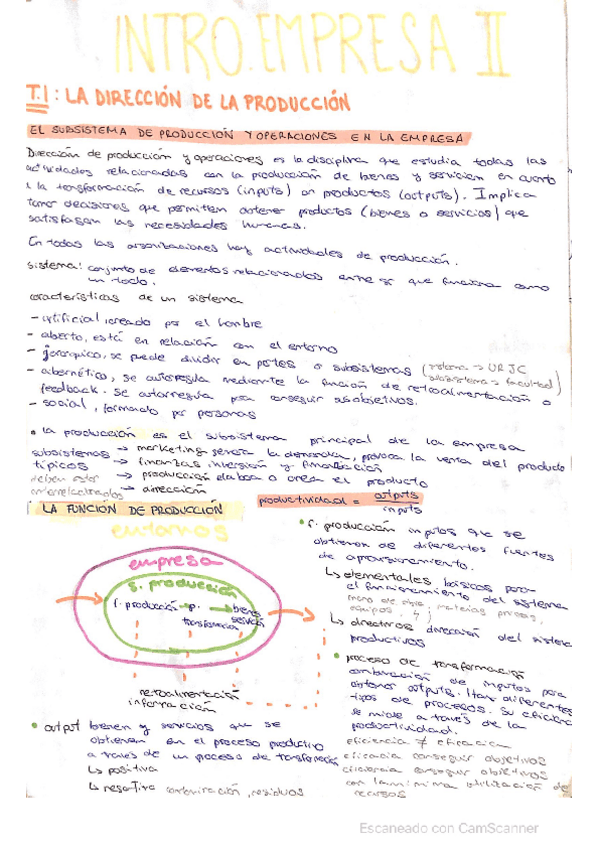 INTRO.EMPRESA II
T.1: LA DIRECCIÓN DE LA PRODUCCIÓN
EL SUBSISTEMA DE PRODUCCIÓN Y OPERACIONES EN LA EMPRESA
Dirección de producción y operaciones es la disciplina que estudia todas las
actividades relacionadas con la producción de bienes y servicios en cuanto
a la transformación de recursos (inputs) en productos (outputs). Implica
tomar decisiones que permitten obtener productos (bienes o servicios) que
satisfagan las necesidades humanas.
En todas las organizaciones hay actividades de producción.
sistema: conjunto de elementos relacionados entre sí que funciona como
un todo.
características de un sistema
- artificial, creado por el hombre
- abierto, está en relación con el entorno
- jerárquico, se puede dividir en partes o subsistemas (sistema → URJC
subsistema → facultad)
- cibernético, se autorregula mediante la función de retroalimentación o
feedback. Se autorregula para conseguir objetivos.
- social, formando por personas
• la producción es el subsistema principal de la empresa
subsistemas → marketing genera la demanda, provoca la venta del producto
típicos → finanzas inversión y financiación
deben estar → producción elabora o crea el producto
interrelacionados → dirección
productividad = outputs
inputs
LA FUNCIÓN DE PRODUCCIÓN
entornos
empresa
s. producción
f. producción → p. → bienes
transformación servicios
retroalimentación
información
• f. producción inputs que se
obtienen de diferentes fuentes
de aprovisionamiento.
↳ elementales básicos para
el funcionamiento del sistema
mano de obra, materias primas,
equipos
↳ directivos dirección del sistema
productivos
• proceso de transformación
combinación de inputs para
obtener outputs. Hay diferentes
tipos de procesos. Su eficiencia
se mide a través de la
productividad.
eficiencia ≠ eficacia
eficacia conseguir objetivos
eficiencia conseguir objetivos
con la mínima utilización de
recursos
• output bienes y servicios que se
obtienen en el proceso productivo
a través de un proceso de transformación
↳ positiva
↳ negativa contaminación, residuos
Escaneado con CamScanner